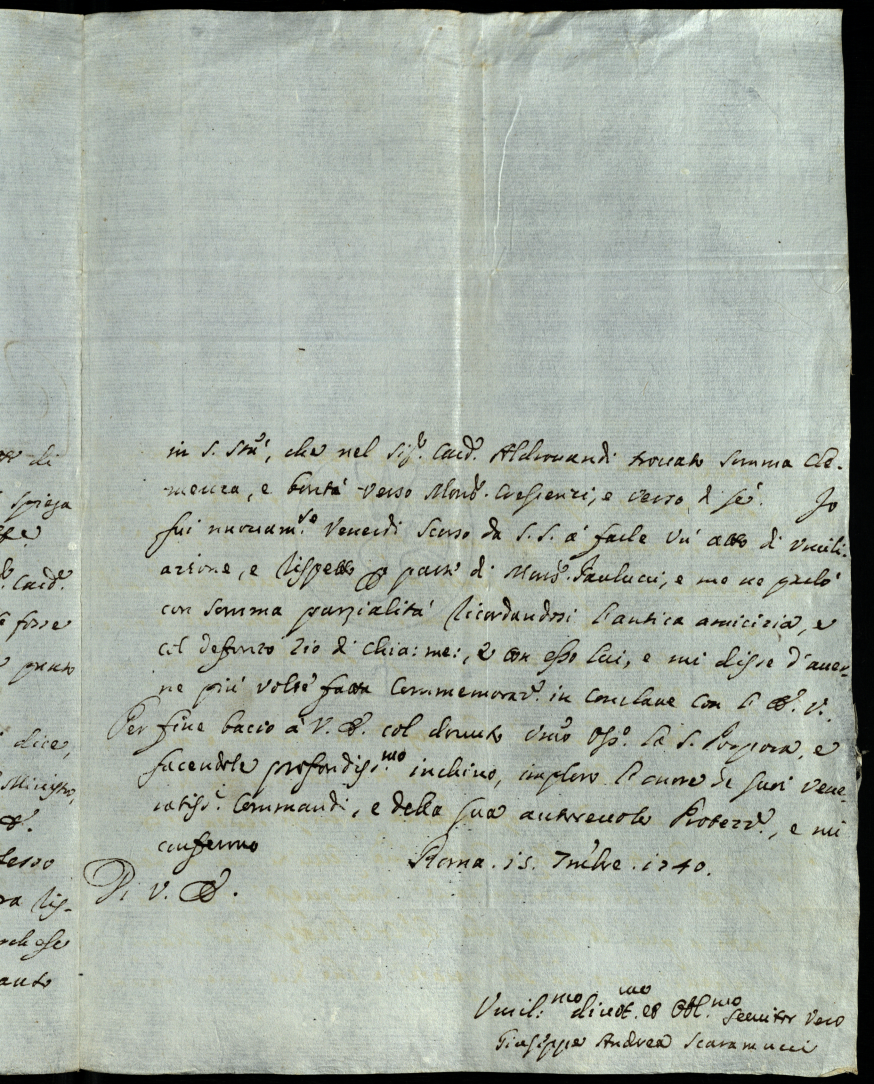 di
spiega
Card.
forse
dice,
Ministro,
in S. Stà, che nel Sig.r Card. Aldrovandi trovato somma Cle-
menza, e bontà verso Mons. Crescenzi, e verso di sè. Io
fui nuovam.te Venerdi Scorso da S. S. à farle un atto di Umili-
azione, e rispetto p parte di Mons. Paulucci, e me ne parlò
con somma parzialità ricordandosi l'antica amicizia, e
col defonto Zio di Chia: me:, e con esso lui, e mi disse d'aver-
ne più volte fatta Commemoraz. in Conclave con l' E. V.
Per fine bacio à V. E. col dovuto oss.o la S. Porpora, e
facendole profondiss.mo inchino, imploro l'onore de suoi vene-
ratiss.i Commandi, e della sua autorevole Protezz.e, e mi
confermo
Roma. 15. 7mbre. 1740.
Di V. E.
Umil.mo divot.mo ed Obl.mo Servitor Vero
Giuseppe Andrea Scaramucci